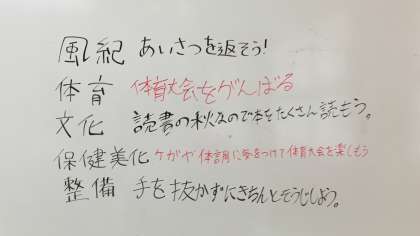 風紀 あいさつを返そう!
体育 体育大会をがんばる
文化 読書の秋なので本をたくさん読もう。
保健美化 ケガや体調に気をつけて体育大会を楽しもう
整備 手を抜かずにきちんとそうじしよう。